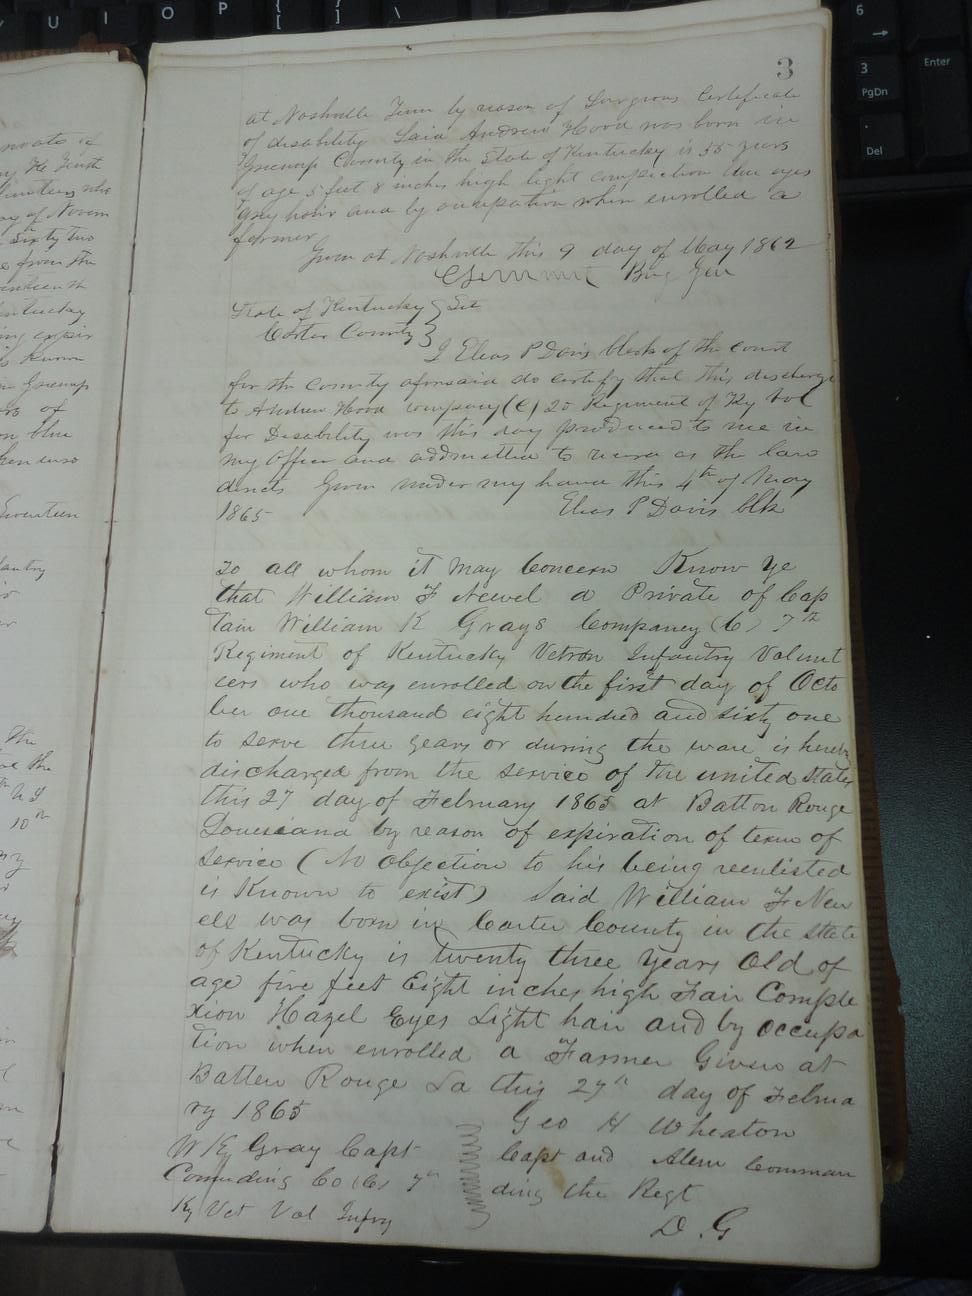 3
at Nashville Tenn by reason of Surgeons Certificate
of disability Said Andrew Hood was born in
Greenup County in the State of Kentucky is 55 years
of age 5 feet 8 inches high light complection blue eyes
gray hair and by occupation when enrolled a
farmer
Given at Nashville this 9 day of May 1862
Brig Gen
State of Kentucky } Sct
Carter County }
I Elias P Davis clerk of the court
for the county aforesaid do certify that this discharge
to Andrew Hood company (E) 20 Regiment of Ky Vol
for Disability was this day produced to me in
my office and addmitted to record as the law
directs Given under my hand this 4th of May
1865 Elias P Davis Clk
To all whom it may Concern Know ye
that William F Newel a Private of Cap
tain William K Grays Companey (C) 7th
Regiment of Kentucky Vetron Infantry Volunt
eers who was enrolled on the first day of Octo
ber one thousand eight hundred and sixty one
to serve three years or during the ware is hereby
discharged from the service of the united States
this 27 day of February 1865 at Batton Rouge
Louisiana by reason of expiration of term of
service (No objection to his being reenlisted
is Known to exist) Said William F New
ell was born in Carter County in the state
of Kentucky is twenty three years Old of
age five feet Eight inches high Fair Comple
xion Hazel Eyes Light hair and by occupa
tion when enrolled a Farmer Given at
Batten Rouge La this 27th day of Februa
ry 1865 Geo H Wheaton
W K Gray Capt Capt and Comman
Comuding Co (C) 7th ding the Regt
Ky Vet Vol Infry D. G
U I O P { [ } ] \
6
3
PgDn
Enter
.
Del